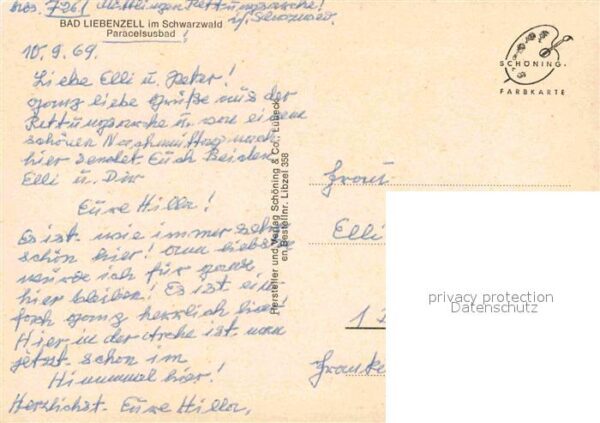 7261 Möttlingen Rettungsarche!
BAD LIEBENZELL im Schwarzwald
Paracelsusbad !
10.9.69.
Liebe Elli u. Peter!
ganz liebe Grüße aus der
Rettungsarche u. von einem
schönen Nachmittag nach
hier sendet Euch Beiden
Elli u. Dir
Eure Hilla!
Es ist wie immer sehr
schön hier! Am liebsten
würde ich für ganz
hier bleiben! Es ist ein
fach ganz herrlich hier!
Hier in der Arche ist man
jetzt schon im
Himmel hier!
Herzlichst Eure Hilla,
Hersteller und Verlag Schöning & Co., Lübeck
Bestellnr. Libzel 358
SCHÖNING
FARBKARTE
Frau
Elli
1
Franke
privacy protection
Datenschutz